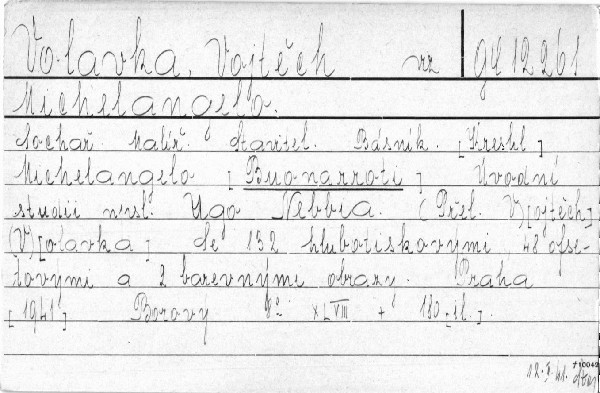 Volavka, Vojtěch vz 9H 12261
Michelangelo.
Sochař. Malíř. Stavitel. Básník. [Kreslil]
Michelangelo [Buonarroti] Úvodní
studii napsl. Ugo Nebbia. (Přel. V)[ojtěch]
(V)[olavka] Se 132 hlubotiskovými 48 ofse-
tovými a 2 barevnými obrazy. Praha
[1941] Borový 8° XLVIII + 180 [il.].
12.I.41.